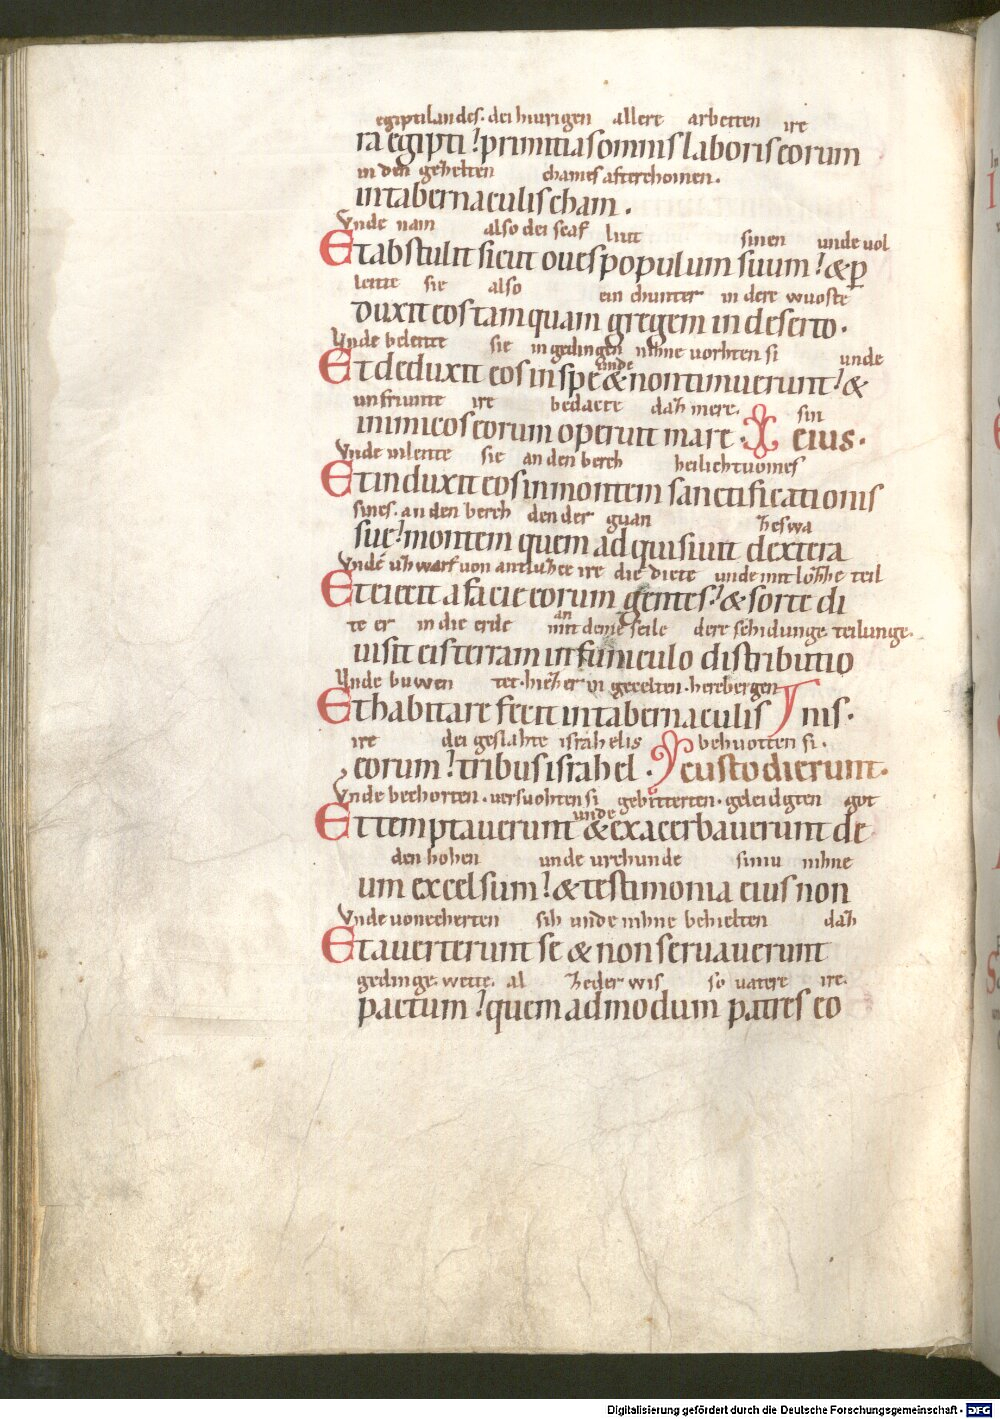 egiptilandes. dei hiurigen allere arbeiten ire
ra egipti primitias omnis laboris eorum
in den gezelten chames afterchomen.
in tabernaculis cham.
Vnde nam also dei scaf liut sinen unde uol
Et abstulit sicut oues populum suum & p
leitte sie also ein chutter in dere wuoste
duxit eos tamquam gregem in deserto.
Vnde beleitte sie in gedingen nihne uorhten si unde
unde
Et deduxit eos in spe & non timuerunt &
unfriunte ire bedacte daz mere. sin
inimicos eorum operuit mare. eius.
Vnde inleitte sie an den berch heilichtuomes
Et induxit eos in montem sanctificationis
sines. an den berch den der guan zeswa
sue montem quem adquisiuit dextera
Vnde uzwarf uon antluzze ire die diete unde mit lozze teil
Et eiecit a facie eorum gentes & sorte di
te er in die erde mit deme seile dere schidunge. teilunge.
uisit eis terram in funiculo distributio
Vnde buwen tet. hiezer in gecelten. herebergen
Et habitare fecit in tabernaculis nis.
ire dei geslahte israhelis behuotten si.
eorum tribus israhel. custodierunt.
Vnde bechorten. uersuohten si gebitterten. geleidigten got
unde
Et temptauerunt & exacerbauerunt de
den hohen unde urchunde siniu nihne
um excelsum & testimonia eius non
Vnde uonecherten sih unde nihne behielten daz
Et auerterunt se & non seruauerunt
gedinge. wette. al zeder wis so uatere ire.
pactum quemadmodum patres eo
Digitalisierung gefördert durch die Deutsche Forschungsgemeinschaft - DFG